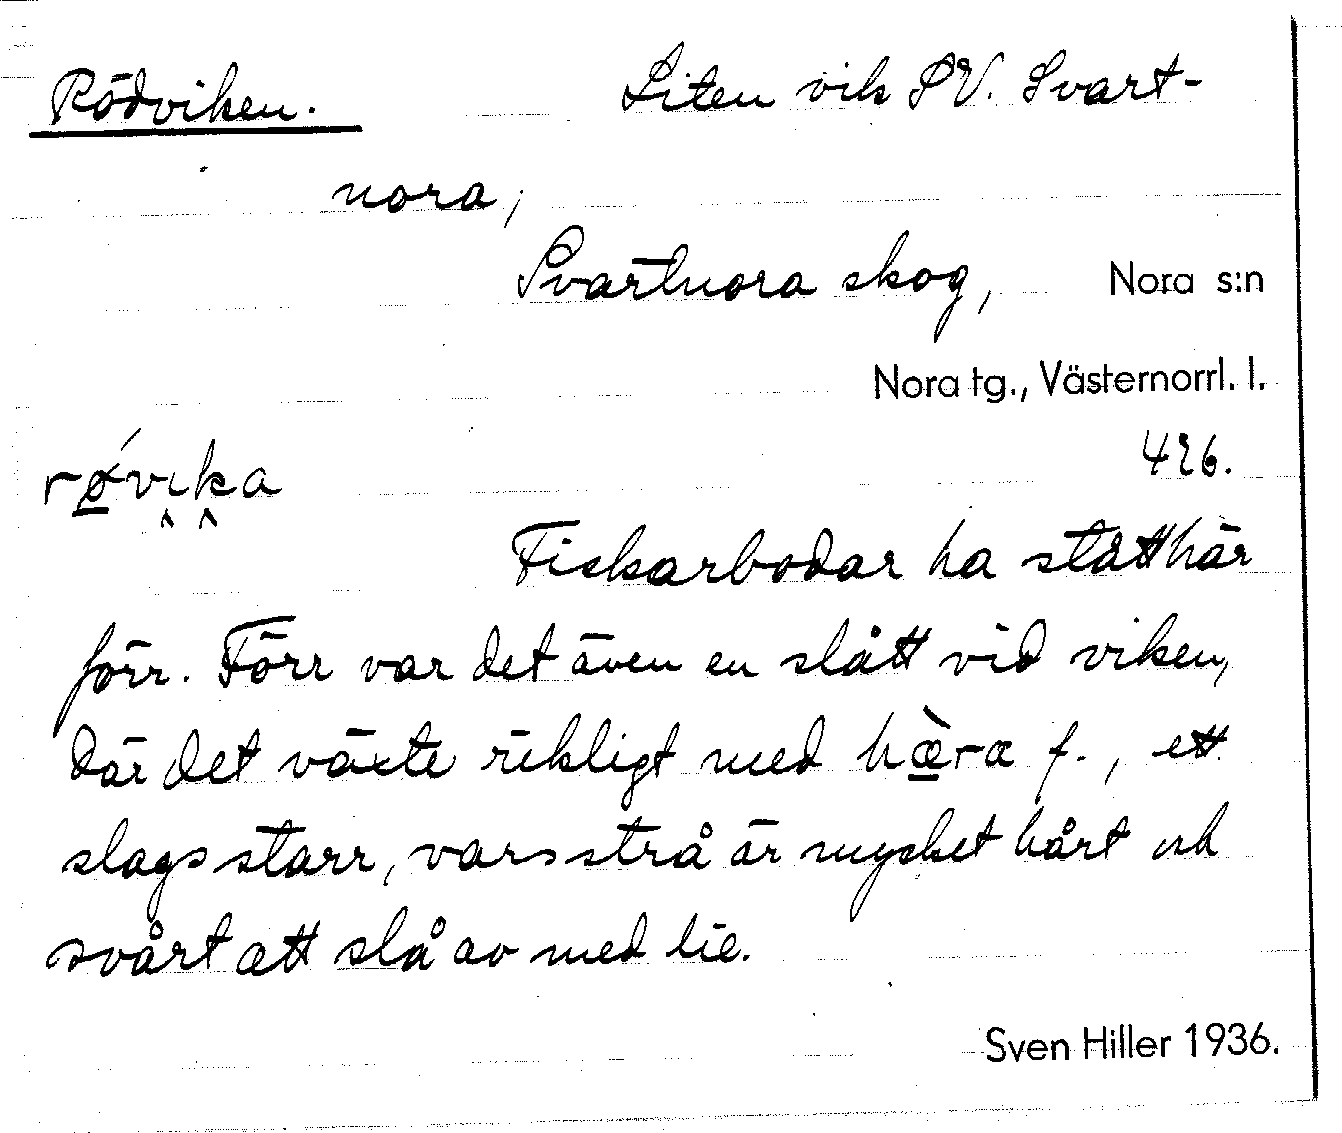 Rödviken. Liten vik SV. Svart-
nora,
Svartnora skog, Nora s:n
Nora tg., Västernorrl. l.
rǿvika 426.
Fiskarbodar ha stått här
förr. Förr var det även en slått vid viken,
där det växte rikligt med hæ̀ra f., ett
slags starr, vars strå är mycket hårt och
svårt att slå av med lie.
Sven Hiller 1936.